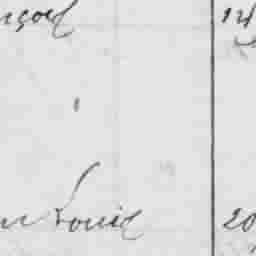 nçois 14
n Louis 20